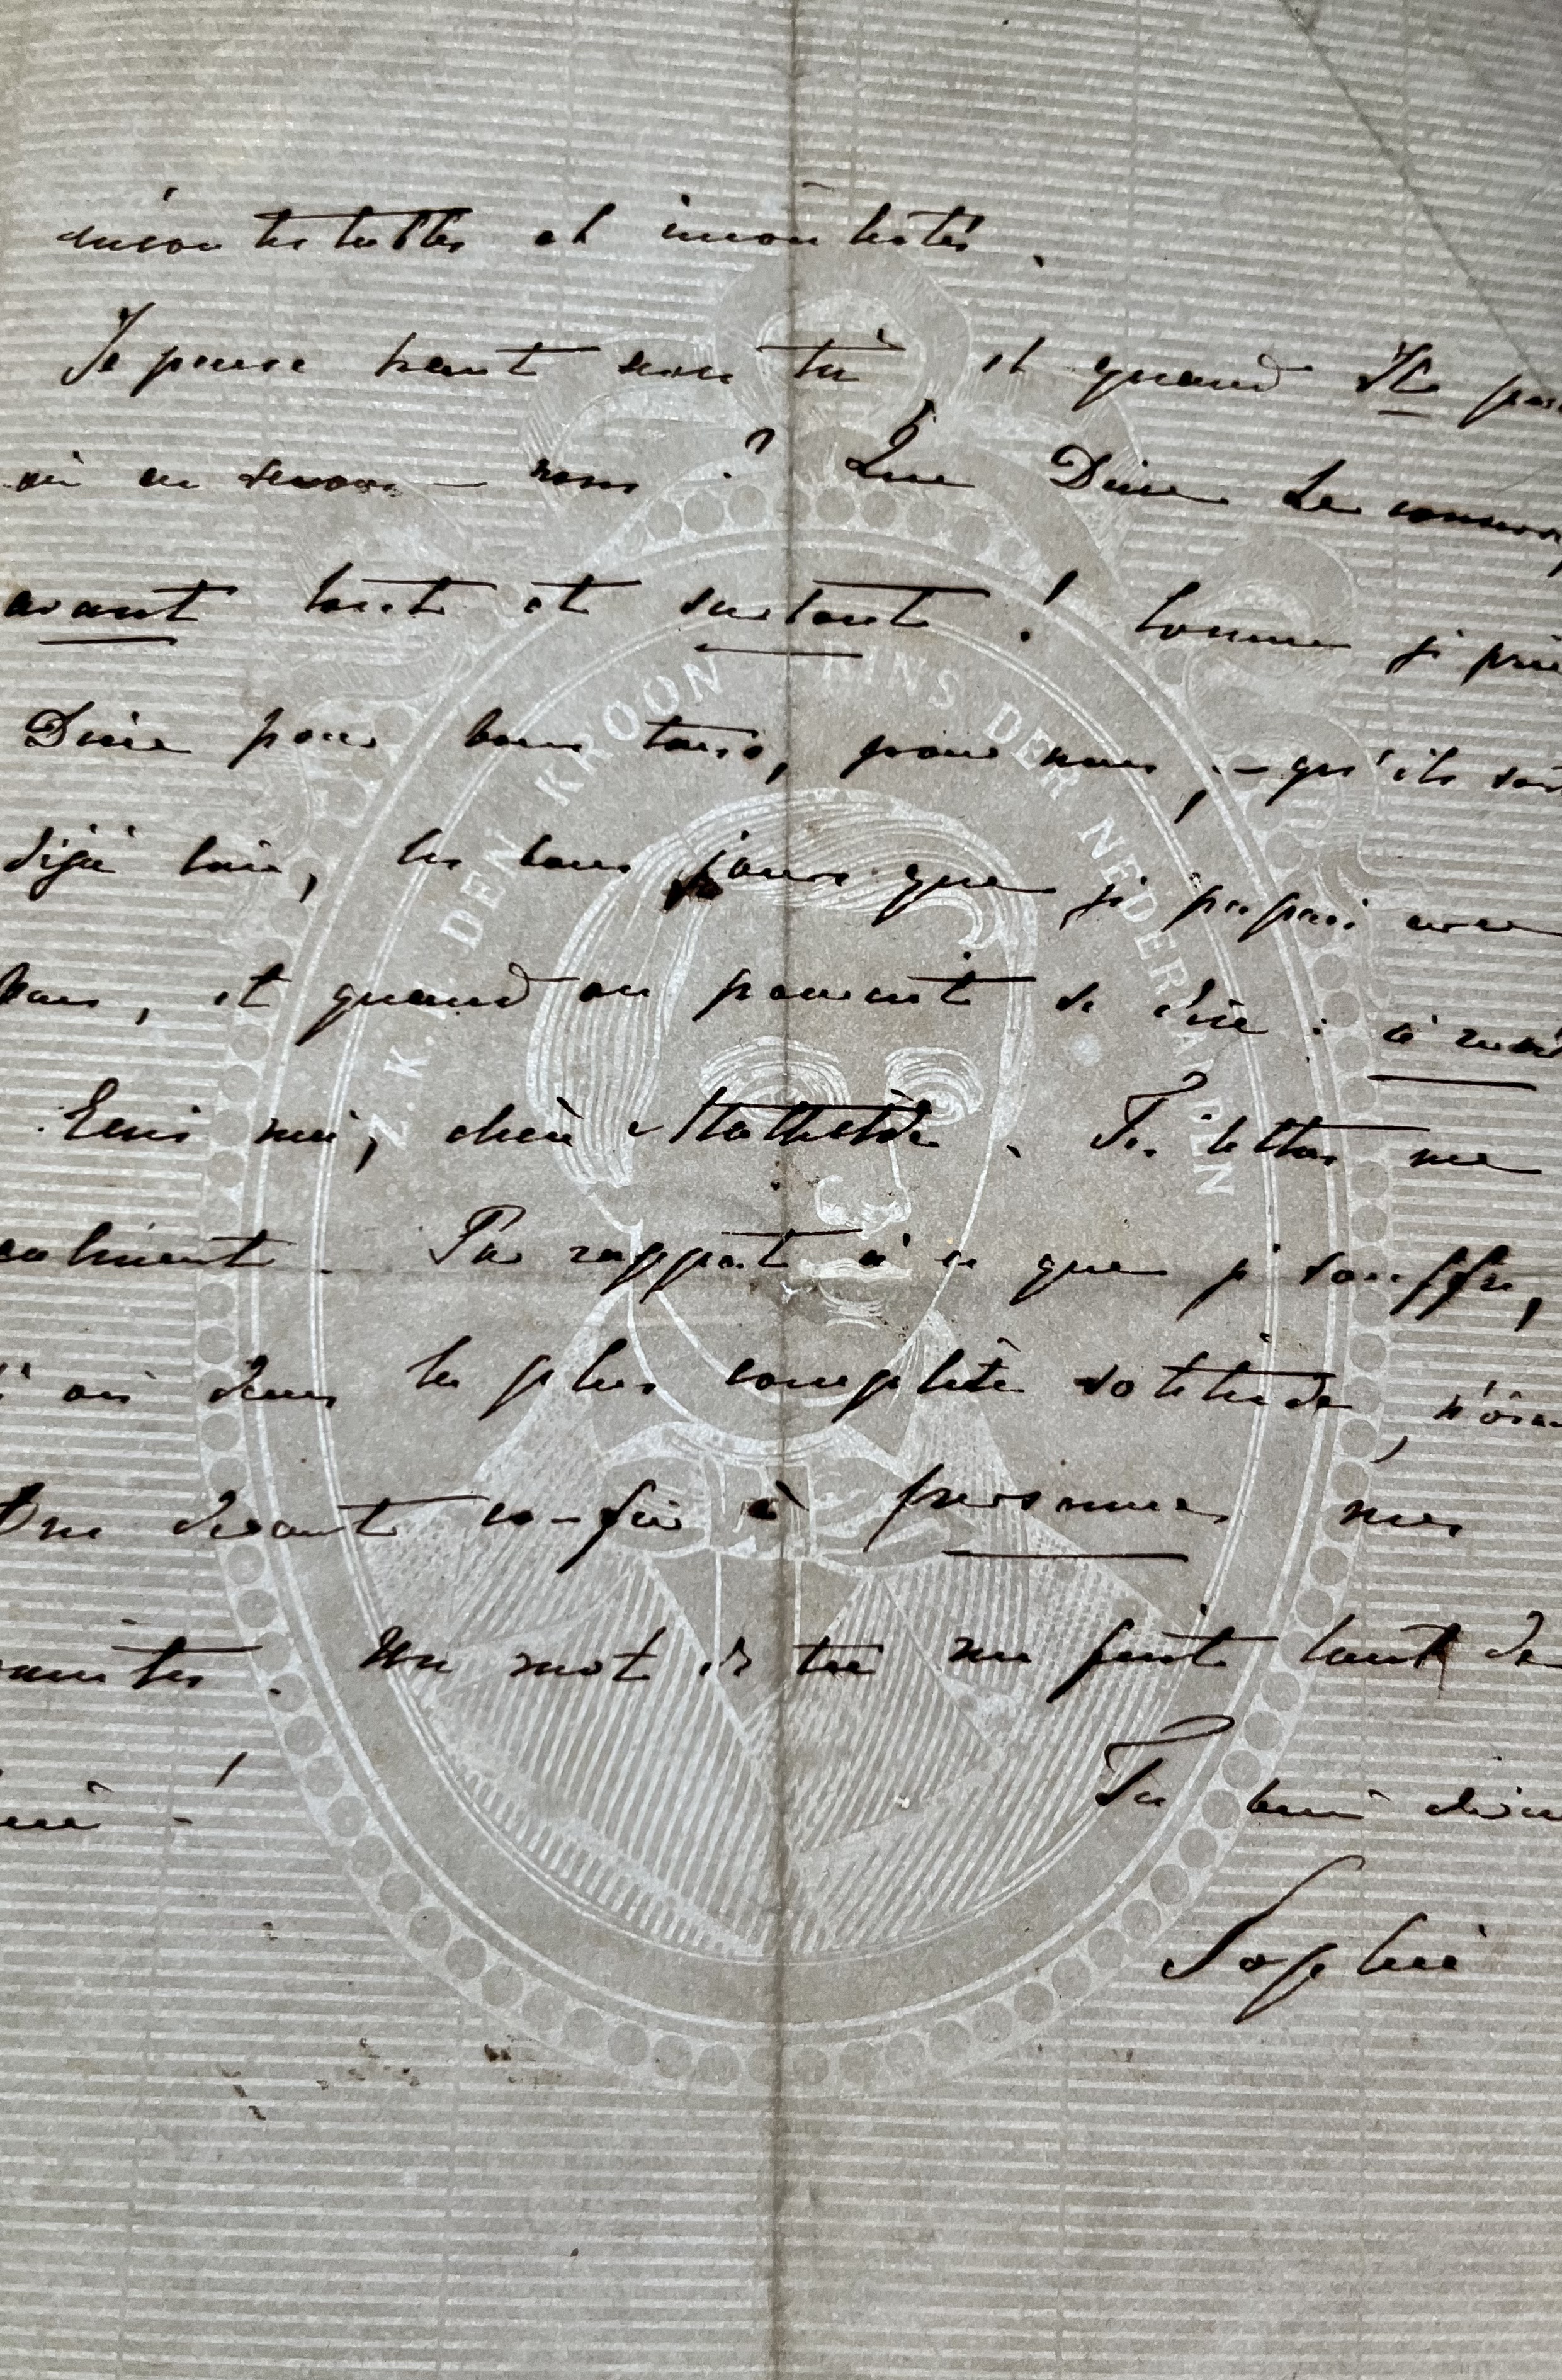 incontestables et incontestés.
Je pense haut avec toi et quand Il
où en serons-nous? Que Dieu Le
avant tout et surtout! Comme je prie
Dieu pour vous tous, pour nous, - qu'ils sont
déjà loin, les bons jours que je passai avec
vous, et quand on pouvait se dire: à
Ecris moi, chère Mathilde. Tes lettres me
calment. Par rapport à ce que je souffre,
dans la plus complète solitude,
devant confier à personne mes
Un mot de toi me fait tant de
! Ta bien
Sophie
Z. K. H. DEN KROONPRINS DER NEDERLANDEN